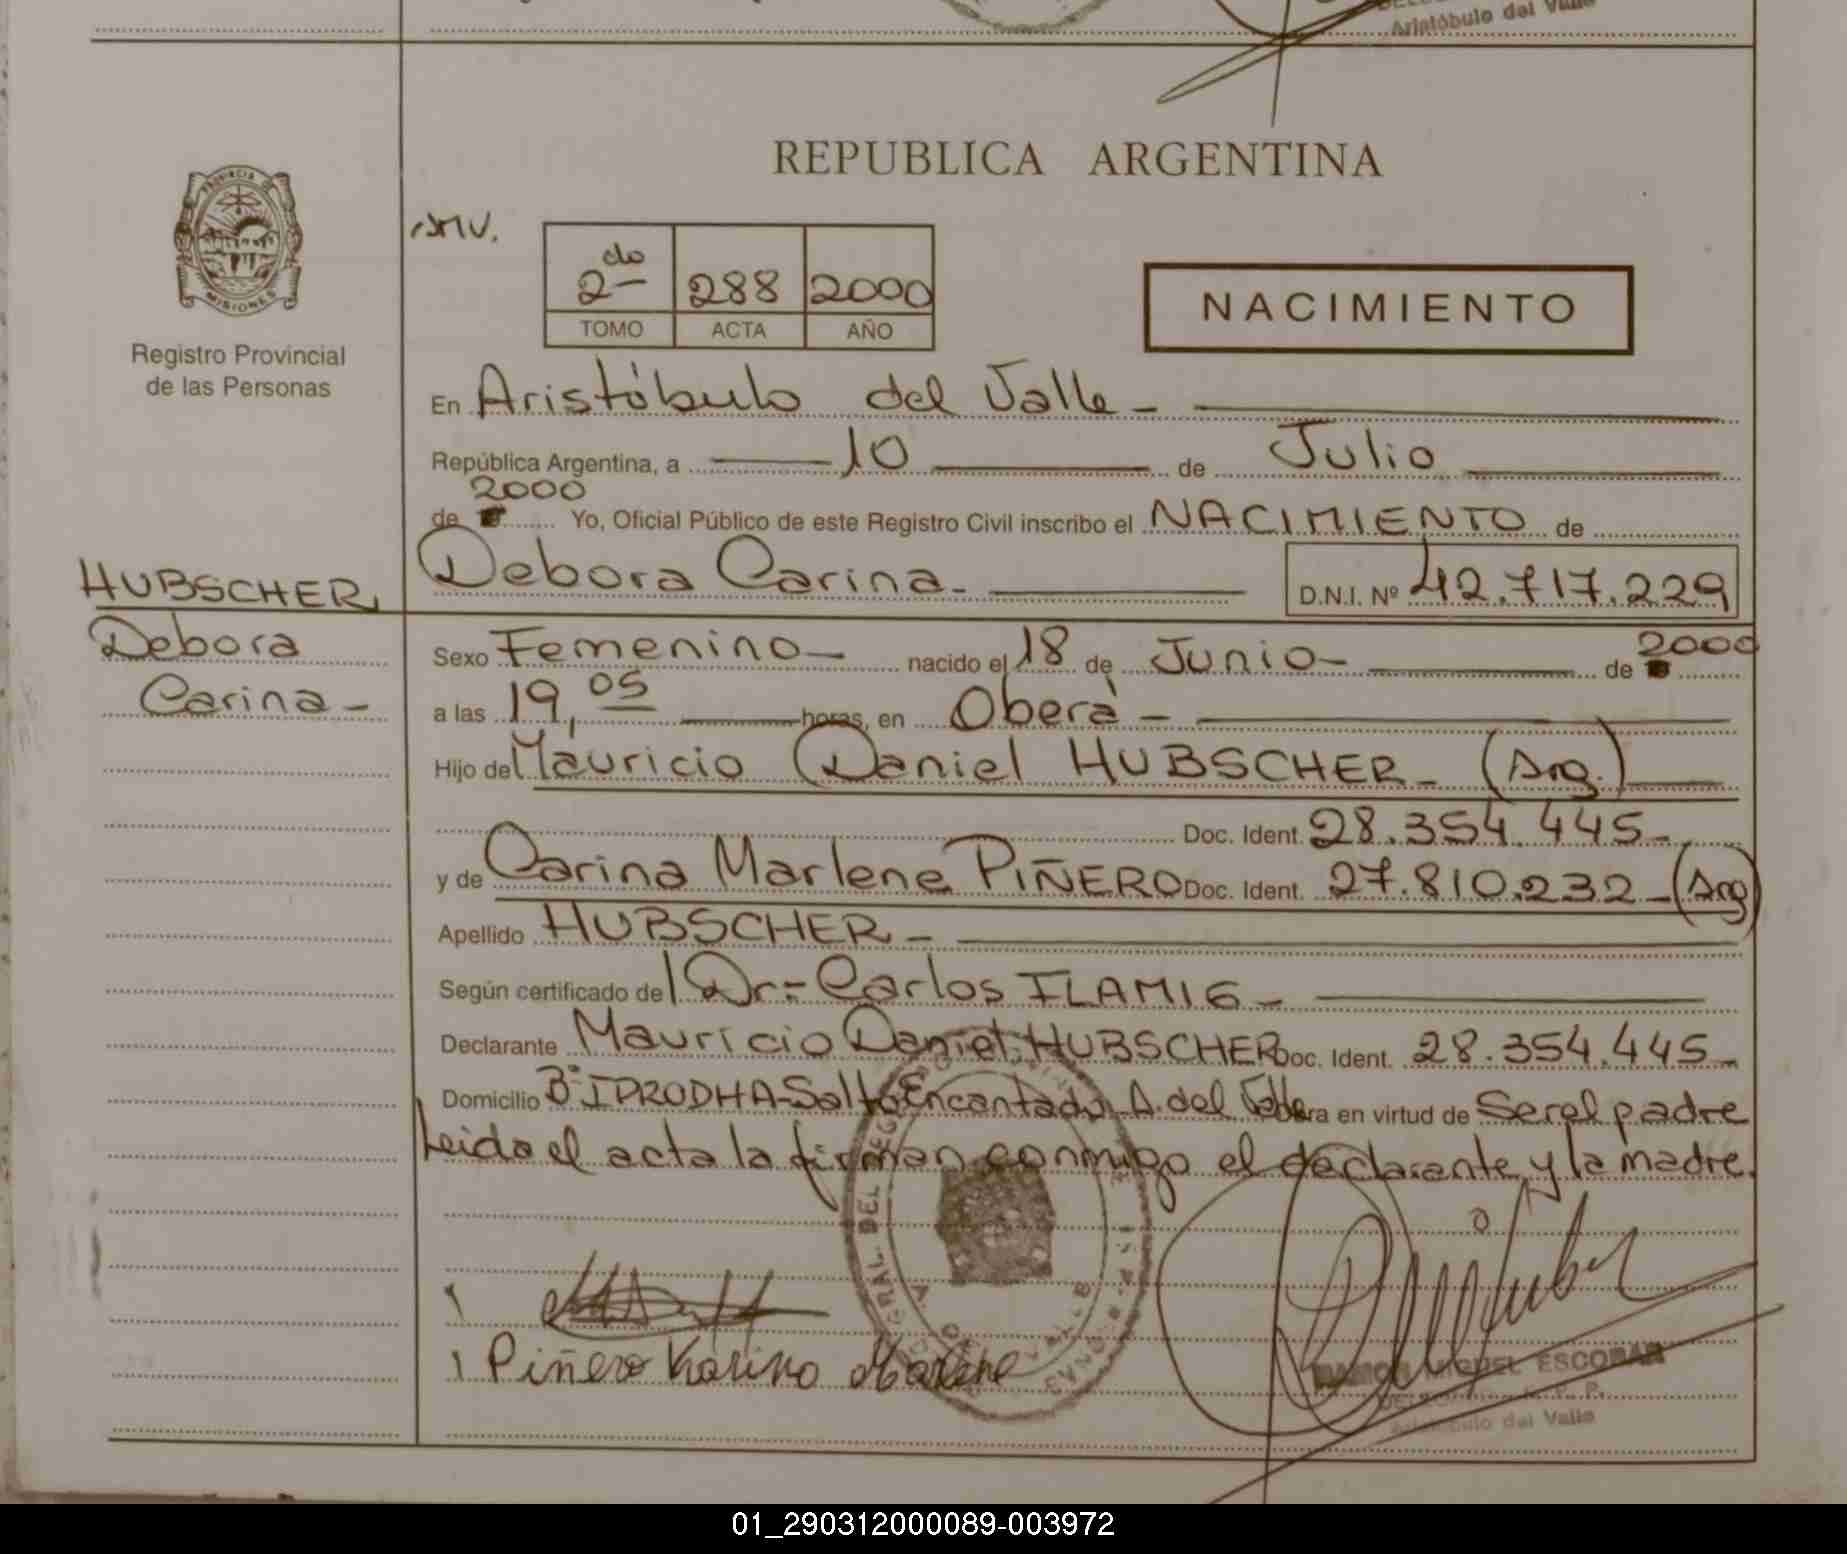 Aristóbulo del Valle
REPUBLICA ARGENTINA
PROVINCIA
MISIONES
Registro Provincial
de las Personas
2do 288 2000
TOMO ACTA AÑO
NACIMIENTO
En Aristóbulo del Valle -
República Argentina, a 10 de Julio
2000
de Yo, Oficial Público de este Registro Civil inscribo el NACIMIENTO de
HUBSCHER
Debora
Carina -
Debora Carina - D.N.I. Nº 42.717.229
Sexo Femenino - nacido el 18 de Junio - de 2000
a las 19,05 horas, en Oberá -
Hijo de Mauricio Daniel HUBSCHER - (Arg.)
Doc. Ident. 28.354.445 -
y de Carina Marlene PIÑERO Doc. Ident. 27.810.232 - (Arg)
Apellido HUBSCHER -
Según certificado del Dr.- Carlos ILAMIG -
Declarante Mauricio Daniel HUBSCHER Doc. Ident. 28.354.445 -
Domicilio Bº IPRODHA-Salto Encantado A. del Valle en virtud de Ser el padre
Leida el acta la firman conmigo el declarante y la madre.
Piñero Karina Marlene
RAMON MIGUEL ESCOBAR
Aristóbulo del Valle
01_290312000089-003972